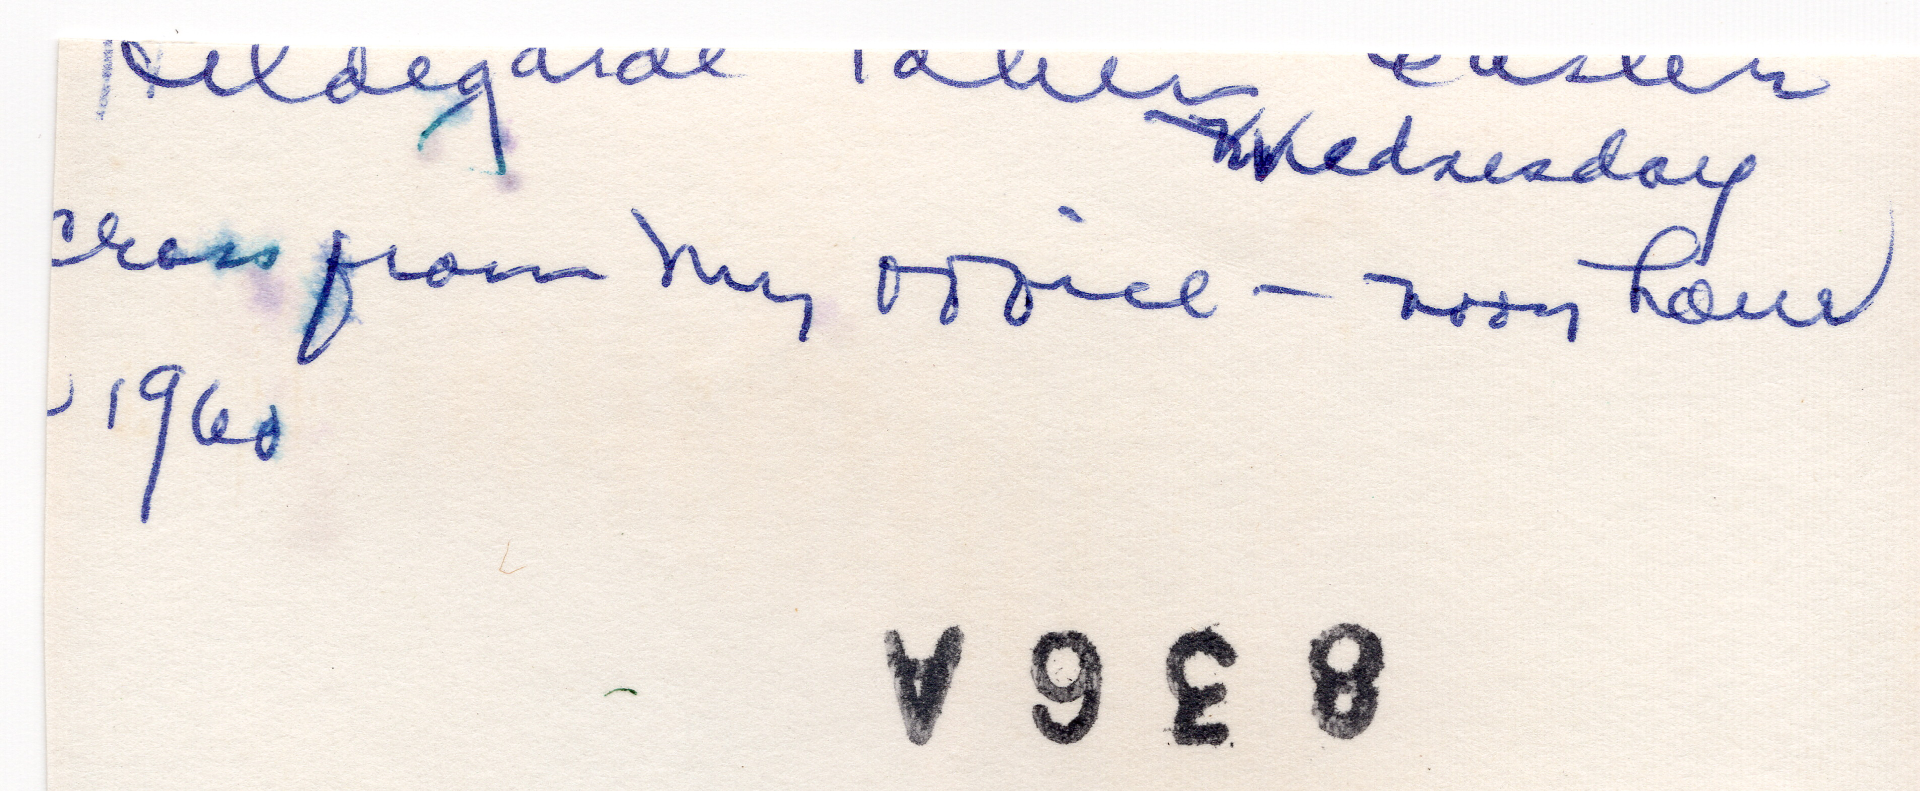 Hildegarde Taken Easter
Wednesday
cross from my office - noon hour
1960
836A